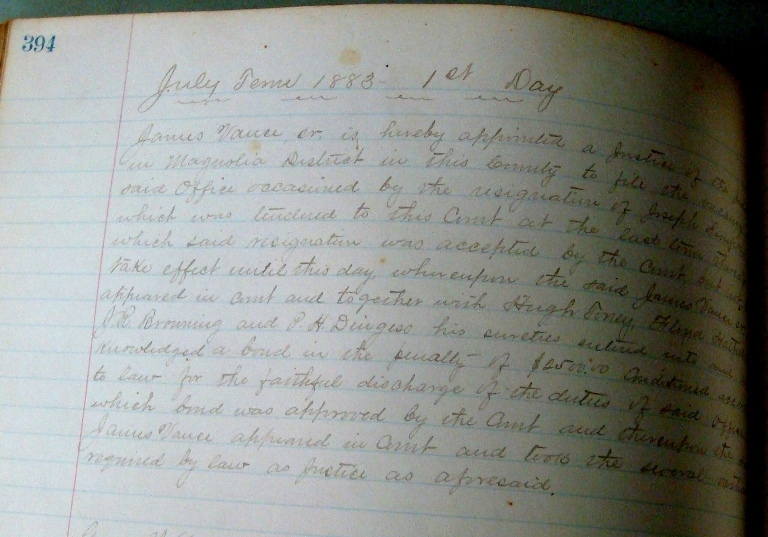 394
July Term 1883 - 1st Day
James Vance sr. is hereby appointed a Justice of the
in Magnolia District in this County to fill the vacancy
said Office occasioned by the resignation of Joseph
which was tendered to this Court at the last term
which said resignation was accepted by the Court but
take effect until this day whereupon the said James Vance
appeared in Court and together with Hugh Toney, Floyd
J.R. Browning and P. H. Dingess his sureties entered into and
knowledged a bond in the penalty of $2500.00 Conditioned
to law for the faithful discharge of the duties of said
which bond was approved by the Court and thereupon the
James Vance appeared in Court and took the several
required by law as Justice as aforesaid.